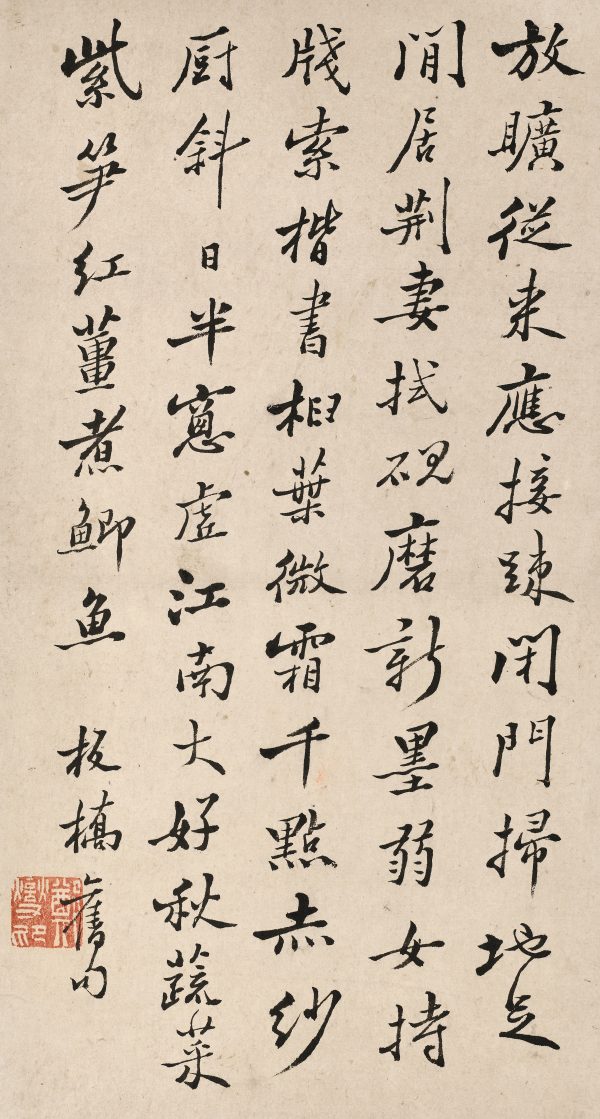 放曠從来應接踈閉門掃地足
閒居荆妻拭硯磨新墨弱女持
牋索楷書桕葉微霜千點赤紗
厨斜日半窻虛江南大好秋蔬菜
紫笋紅薑煮鯽魚 板橋舊句